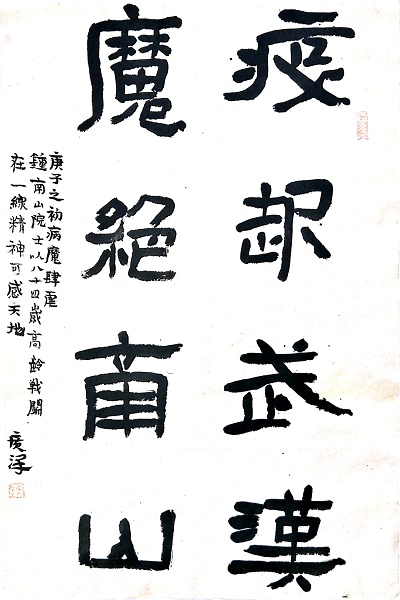 疫起武漢
魔絕南山
庚子之初病魔肆虐
鍾南山院士以八十四歲高齡戰鬭
在一線精神可感天地